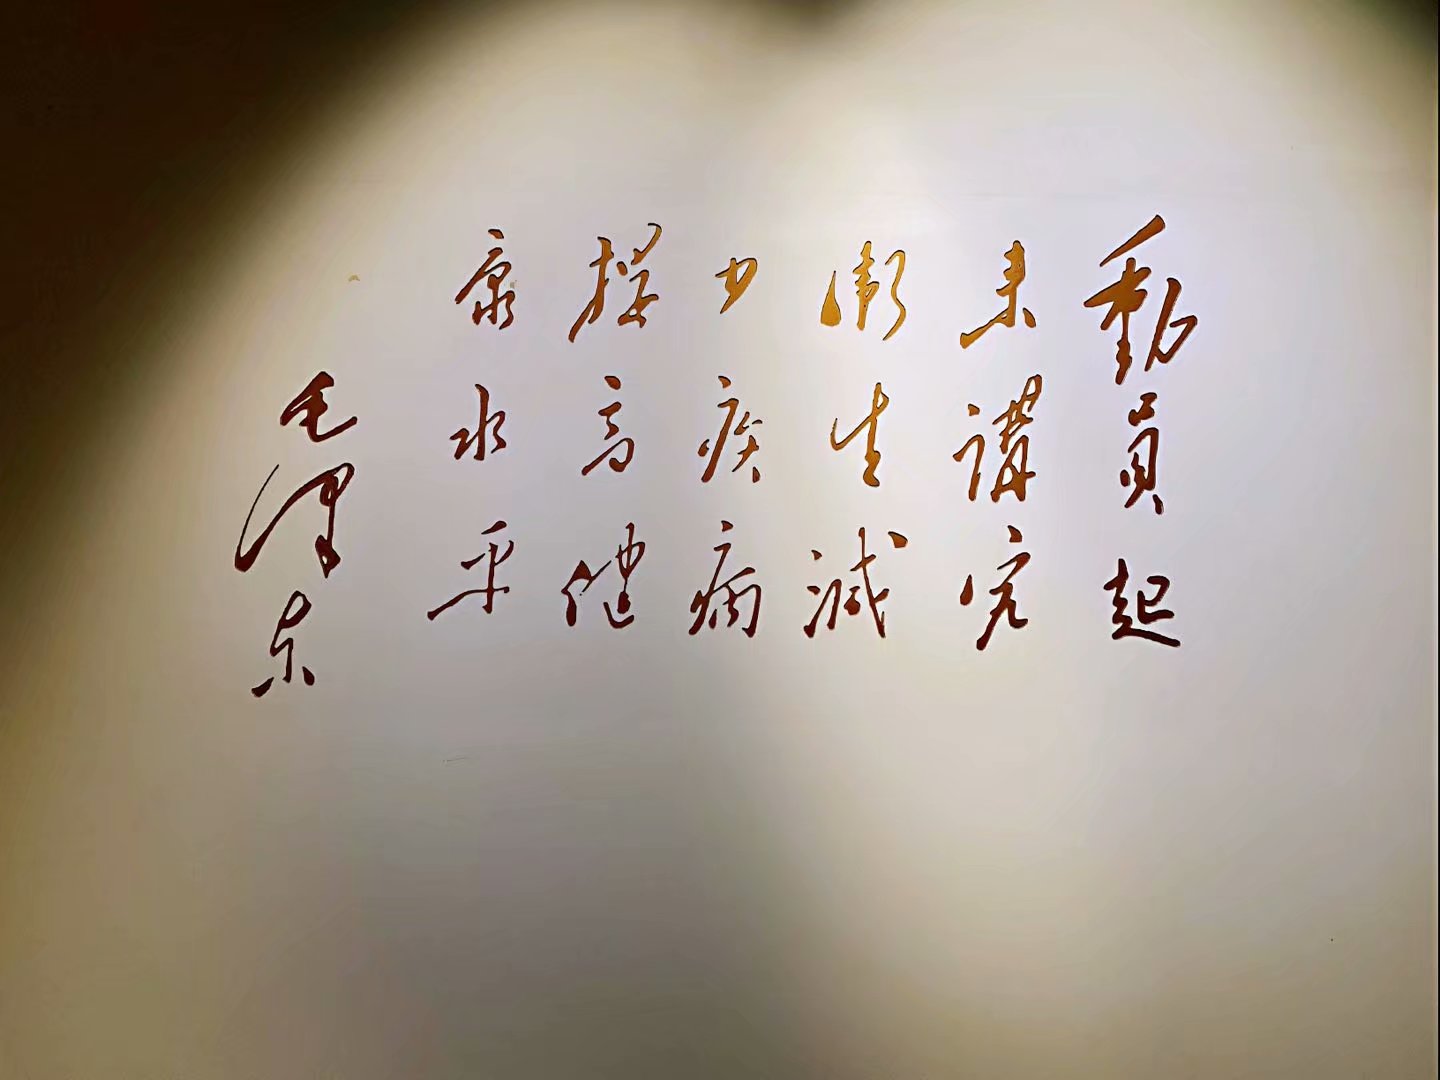 動員起
来講究
衛生減
少疾病
提高健
康水平
毛泽东